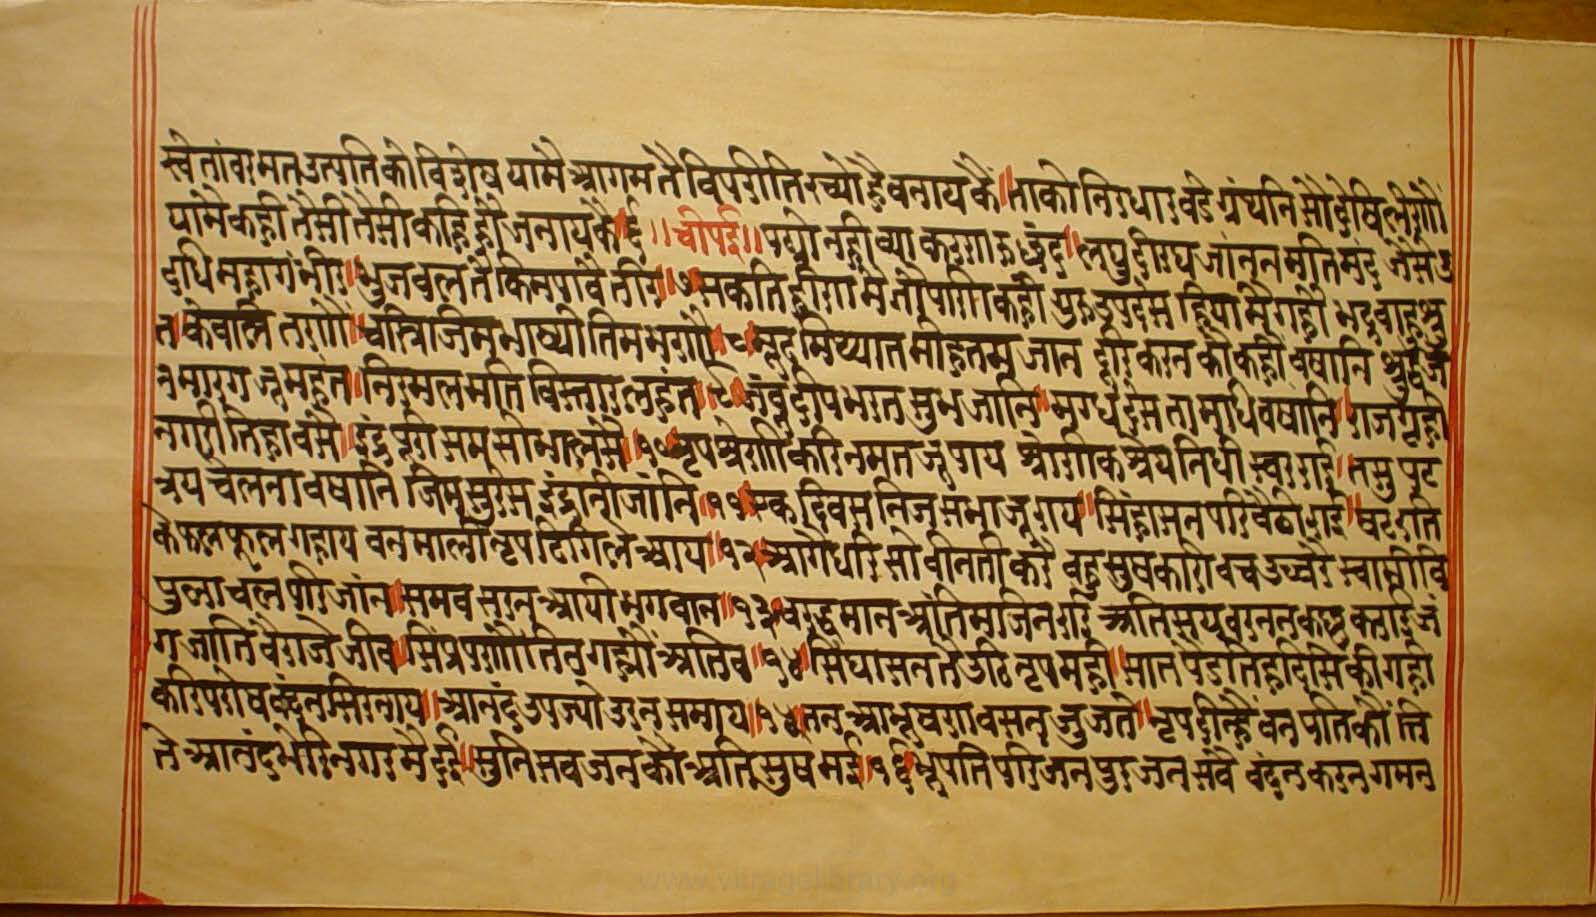 स्वेतांवरमतउत्पतिकोविशेष यामै आगमतै विपरीतिरच्यो है वनाय कै॥ ताको निरधार वडे ग्रंथनि सौ देषि लीजौ
यामै कही तैसी तैसी कहि हौ जनाय कै ६॥ चौपई॥ पढ्यो नही व्याकरण छंद॥ लघु दीरघ जांनन मतिमंद जैसे उ
दधि महागंभीर॥ भुजवल तै किम पावै तीर॥ ७ सकति हीण मै तौ पणि कहौ गुरु उपदेस हिया मै गहौ भद्रवाहु श्रु
त केवलि तणौ॥ चरित्र जिम भाष्यौ तिम भणौ॥ ८ मूढ मिथ्यात मोहतम जान दूरि करन कौ कहौ वषानि
न मारग जू महंत॥ निरमल मति विस्तार लहंत॥ ९ जंवूदीप भरत सुभ जानि॥ मगध देस ता मधि वषानि॥ राजगृही
नगरी तिहा वसै॥ इंद्रपुरी सम सोभा लसै॥ १० नृप श्रेणी करि नमत जू पाय श्रेणिक श्रेय निधी स्वर राई॥ तसु पट
त्रय चेलना वषानि जिम सुरेस इंद्रानी जांनि॥ ११ एक दिवस निज सभा जू राय॥ सिंहासन परि वैठौ राई॥ षटरिति
के फल फूल गहाय वनमाली नृप ढिगि ले आय॥ १२ आगै धरि सो वीनती करै वहु सुषकारी वच उच्चरै स्वामी वि
पुलाचल परि जांन॥ समवसरन आयौ भगवान॥ १३ वरद्धमान अंतिम जिनराई अतिसय वरनन कछु
ग जाति वैर जे जीव॥ १४ सिंघासन तै उठि नृप मही॥ सात पैड तिह दिसि की गही
करि परोष वंदन सिरनाय॥ आनंद उपज्यो उरन समाय॥ १५ तन आभूषण वसन जु जते॥ नृप दीन्है वनपति कौ ति
ते आनंद भेरि नगर मै दई॥ सुनि सव जन कौ अति सुष भई॥ १६ भूपति परिजन पुरजन सवै वंदन करन गमन